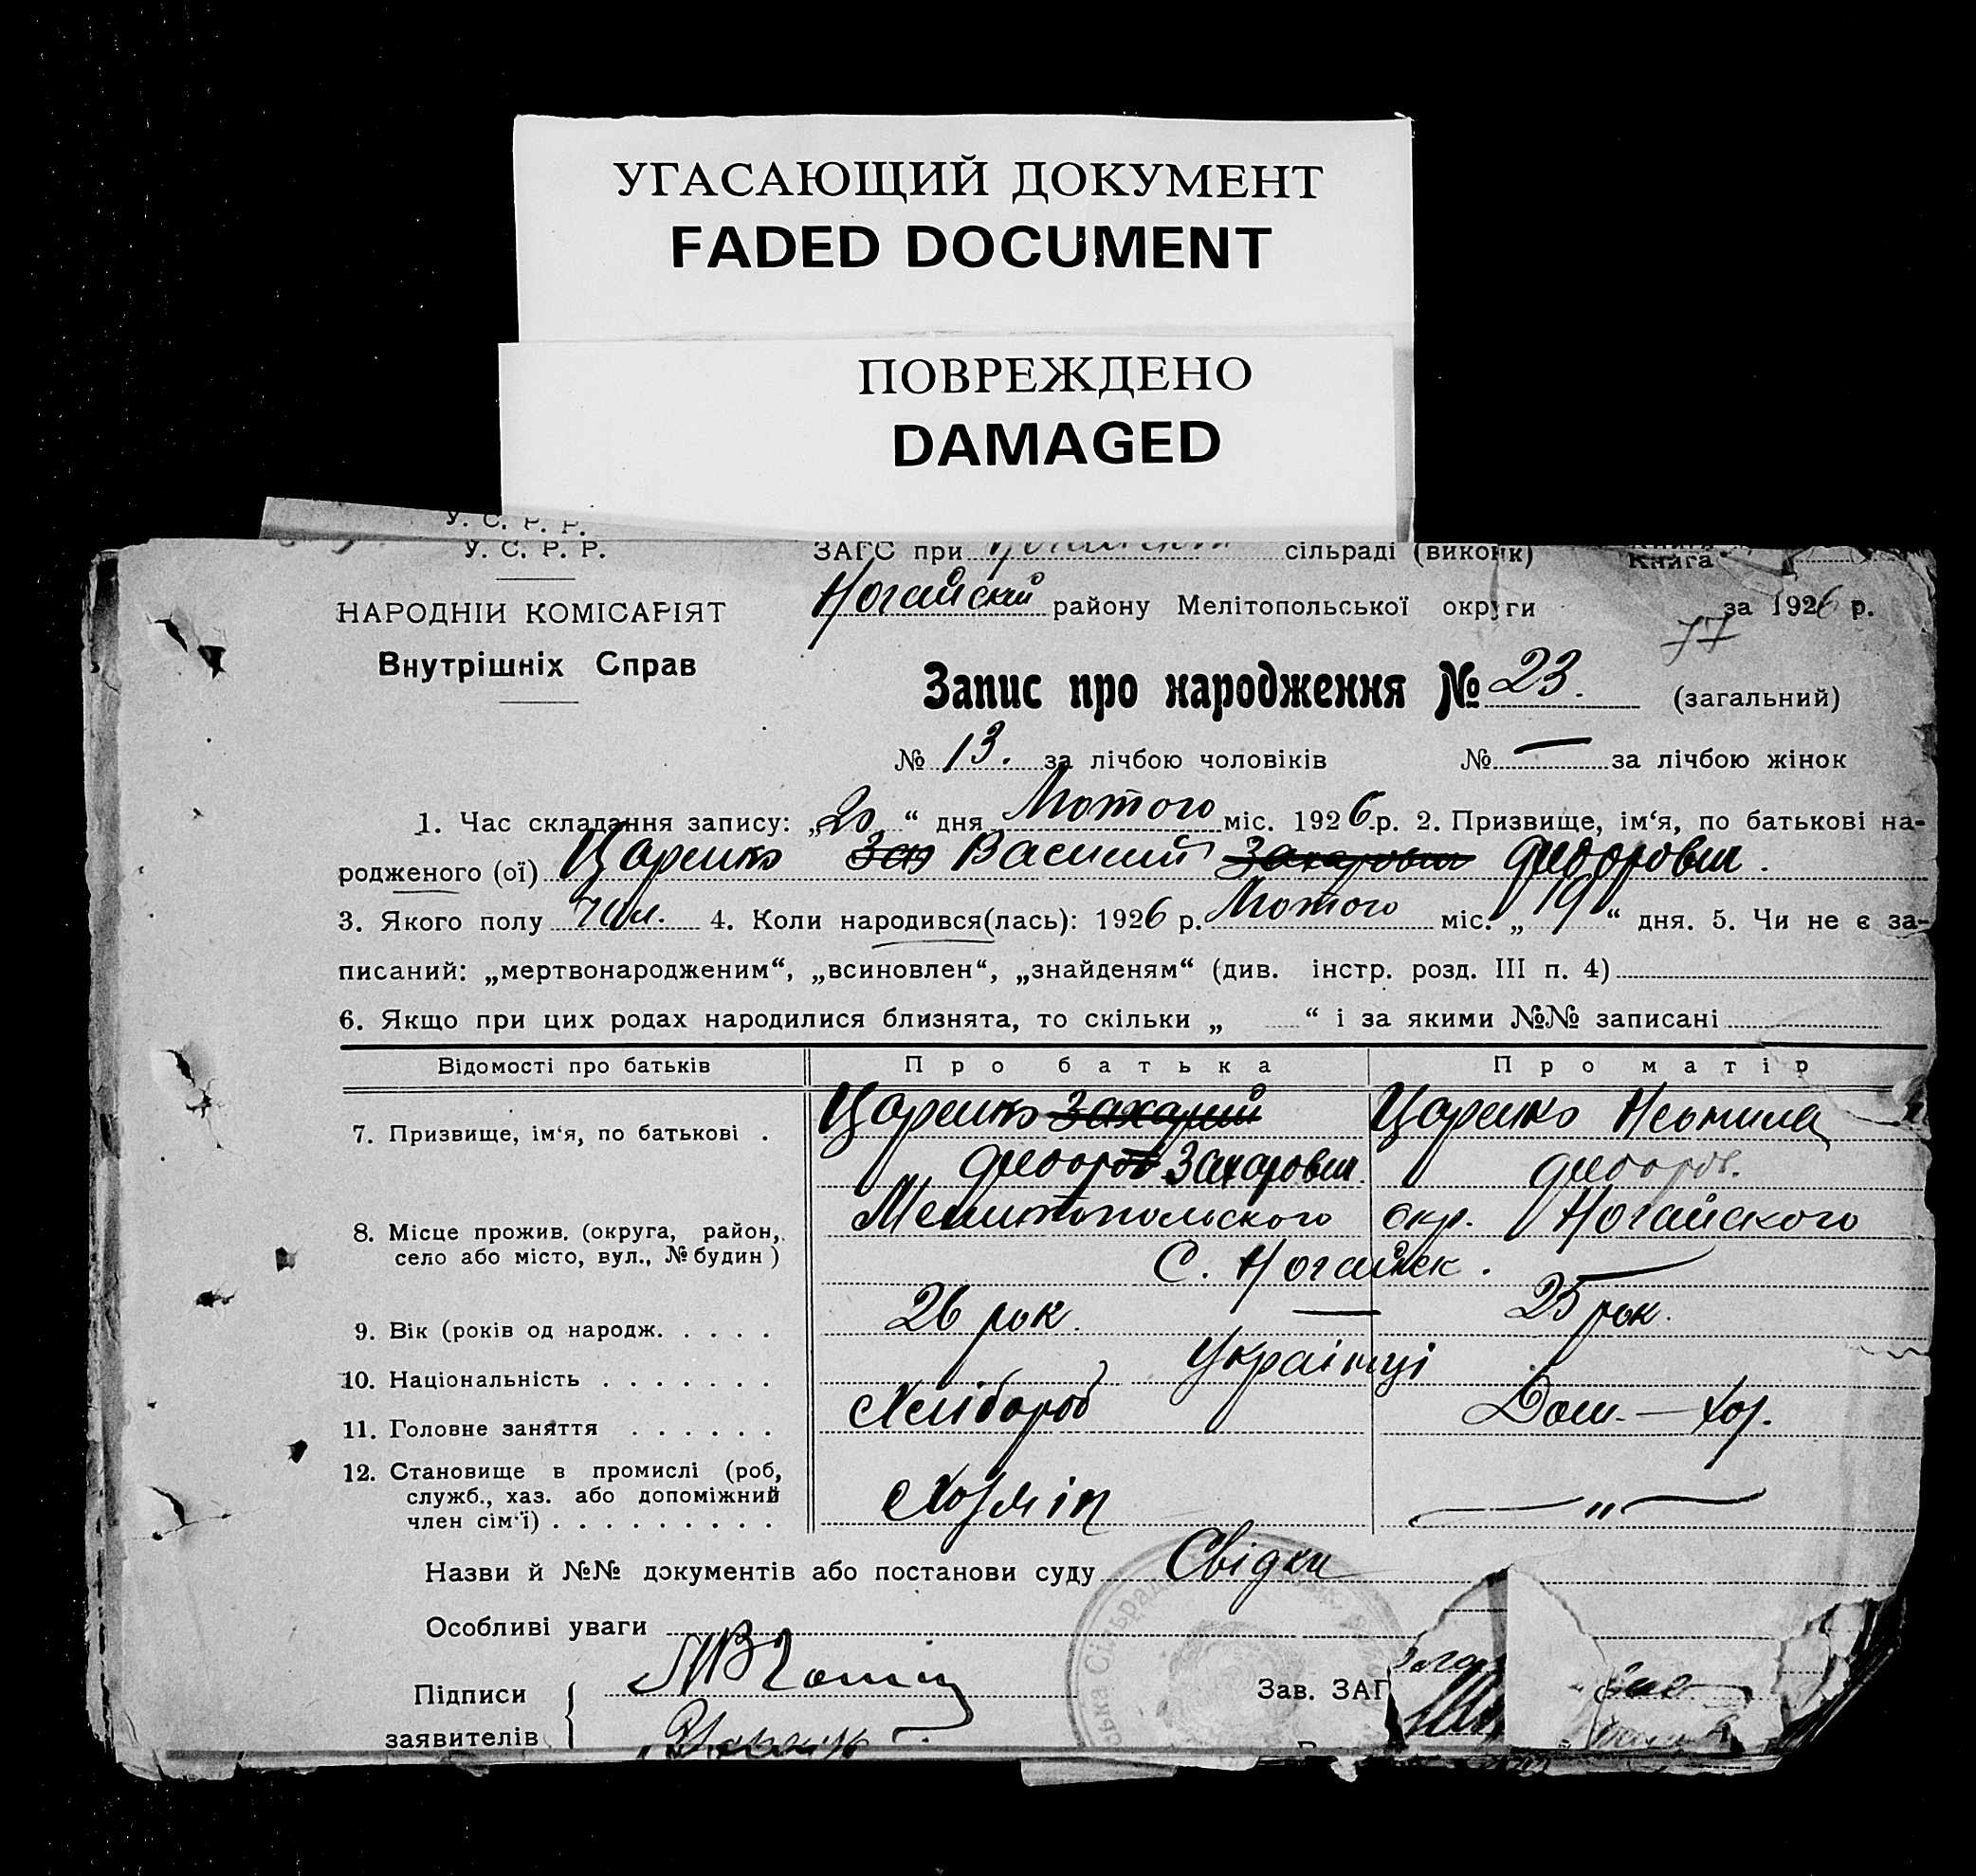 УГАСАЮЩИЙ ДОКУМЕНТ
FADED DOCUMENT
ПОВРЕЖДЕНО
DAMAGED
У. С. Р. Р.
У. С. Р. Р.
ЗАГС при сільраді (виконк) Книга
НАРОДНІИ КОМІСАРІЯТ
Ногайский району Мелітопольської округи за 1926 р.
77
Внутрішніх Справ
Запис про народження № 23. (загальний)
№ 13. за лічбою чоловіків № — за лічбою жінок
1. Час складання запису: „20“ дня Лютого міс. 1926 р. 2. Призвище, ім‘я, по батькові на-
родженого (ої) Царенко Зах Василий Захарович Федорович.
3. Якого полу чол. 4. Коли народився(лась): 1926 р. Лютого міс. „19“ дня. 5. Чи не є за-
писаний: „мертвонародженим“, „всиновлен“, „знайденям“ (див. інстр. розд. III п. 4)
6. Якщо при цих родах народилися близнята, то скільки „ “ і за якими №№ записані
Відомості про батьків Про батька Про матір
7. Призвище, ім‘я, по батькові . Царенко Захарий Царенко
Федоров Захарович Федоров.
8. Місце прожив. (округа, район, Мелитопольского окр. Ногайского
село або місто, вул., № будин) С. Ногайск.
9. Вік (років од народж. . . . . 26 рок. — 25 рок.
10. Національність . . . . . . . Українці
11. Головне заняття . . . . . . Хлібороб Дом.—хоз.
12. Становище в промислі (роб,
служб., хаз. або допоміжний Хозяін — „ —
член сім‘ї) . . . . . . . . .
Назви й №№ документів або постанови суду Свідки
Особливі уваги
Підписи Зав. ЗАГ
заявителів